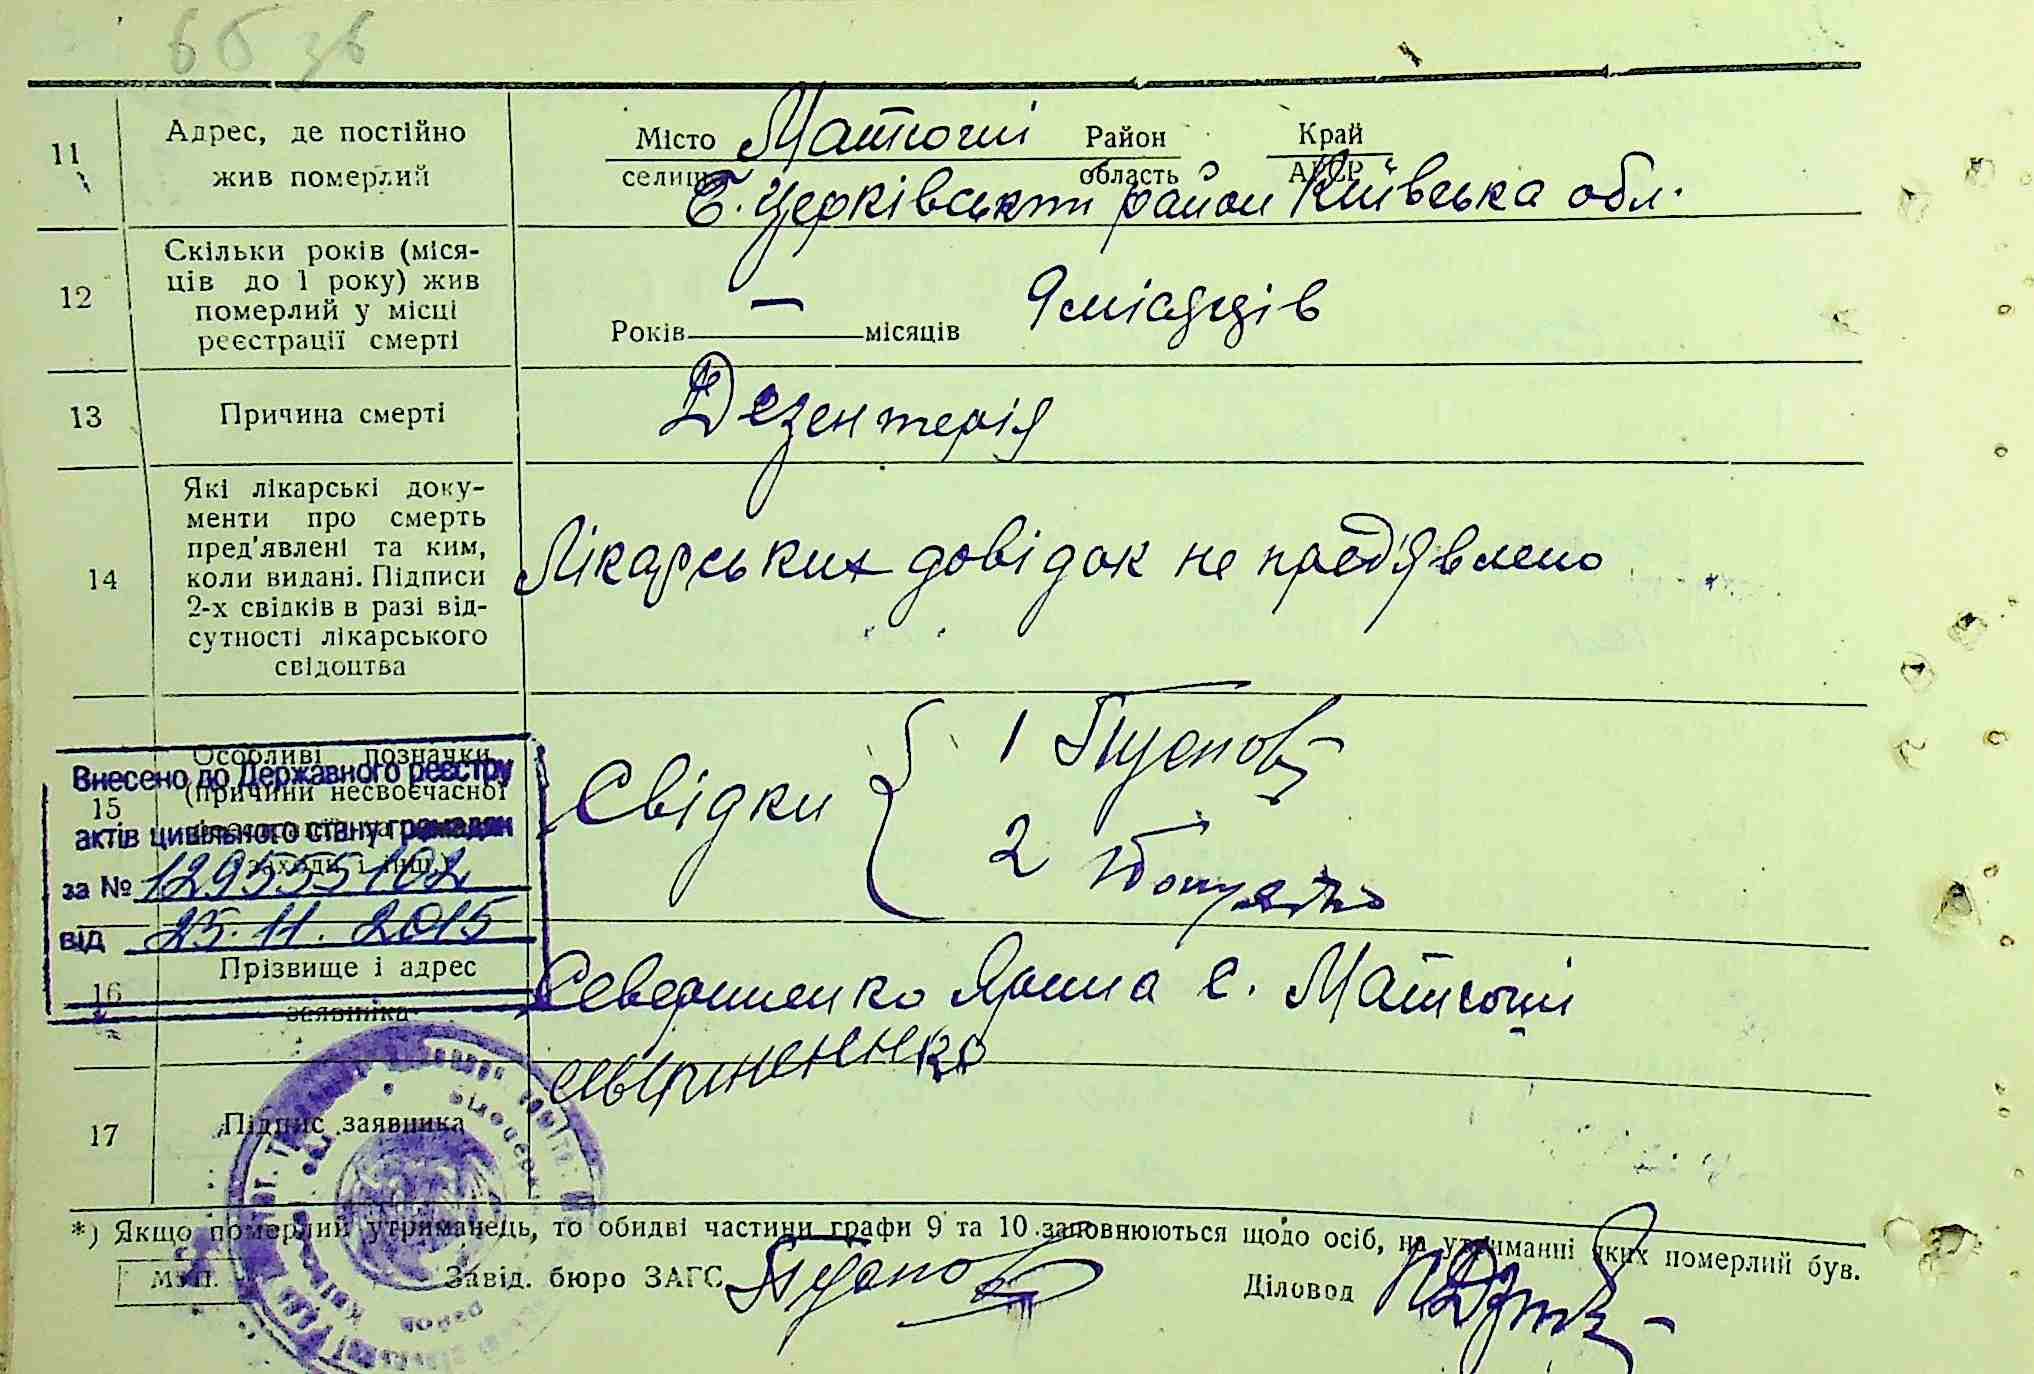 11
Адрес, де постійно
жив померлий
Місто Матюші Район Край
селище область АРСР
Б. Церківський район Київська обл.
12
Скільки років (міся-
ців до 1 року) жив
померлий у місці
реєстрації смерті
Років — місяців 9 місяців
13
Причина смерті
Дезентерія
14
Які лікарські доку-
менти про смерть
пред'явлені та ким,
коли видані. Підписи
2-х свідків в разі від-
сутності лікарського
свідоцтва
Лікарських довідок не пред'явлено
15
Особливі позначки
(причини несвоєчасної
заходи і інш.)
Внесено до Державного реєстру
актів цивільного стану громадян
за №
від 25.11.2015
Свідки
1
2
16
Прізвище і адрес
заявника
Севериненко Ярина с. Матюші
17
Підпис заявника
*) Якщо померлий утриманець, то обидві частини графи 9 та 10 заповнюються щодо осіб, на утриманні яких померлий був.
М. П.
Завід. бюро ЗАГС
Діловод